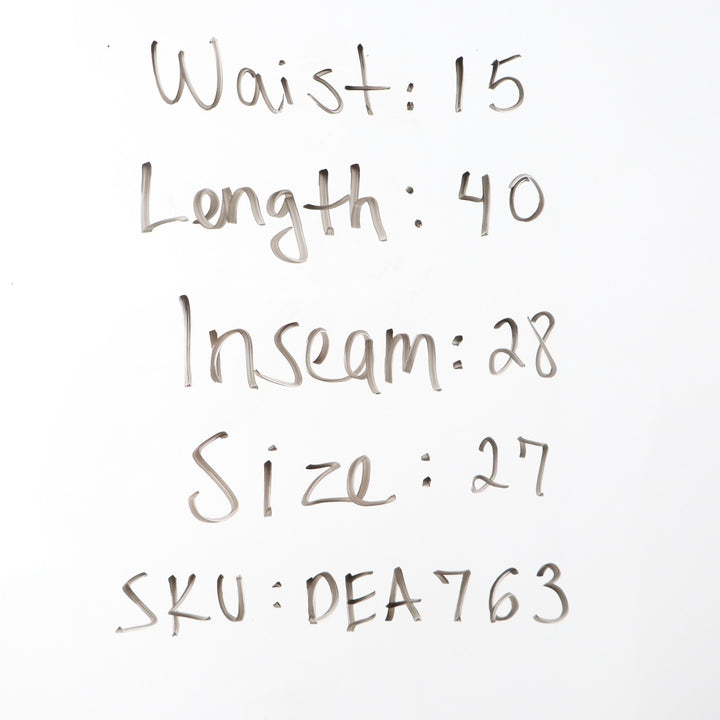 Waist: 15
Length: 40
Inseam: 28
Size: 27
SKU: DEA763